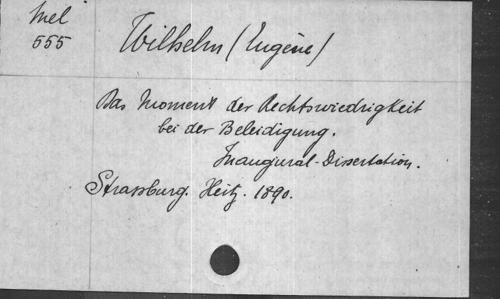 Mel
555
Wilhelm (Eugène)
Das Moment der Rechtswiedrigkeit
bei der Beleidigung.
Inaugural-Dissertation.
Strassburg. Heitz. 1890.